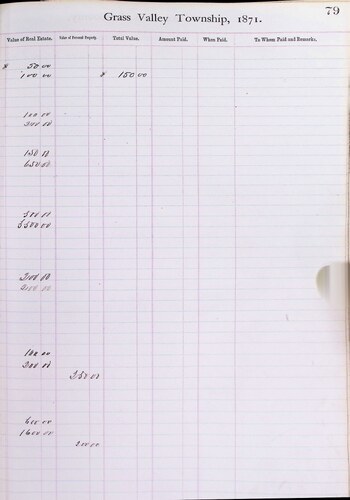 79
Grass Valley Township, 1871.
Value of Real Estate. Value of Personal Property. Total Value. Amount Paid. When Paid. To Whom Paid and Remarks.
$ 50 00
100 00 $ 150 00
100 00
300 00
150 00
650 00
500 00
5500 00
300 00
100 00
300 00
350 00
600 00
1600 00
200 00